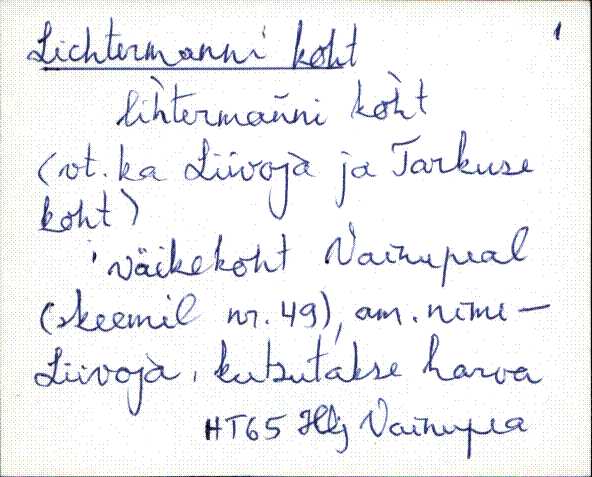 Lichtermanni koht 1
lìhtermañni kòht
(vt. ka Liivoja ja Tarkuse
koht)
väikekoht Vainupeal
(skeemil nr. 49), am. nimi –
Liivoja, kutsutakse harva
HT65 Hlj Vainupea